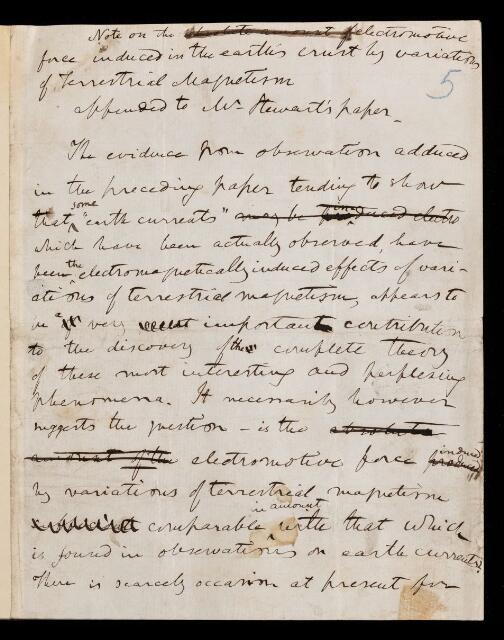 Note on the absolute amount of electromotive
force induced in the earth's crust by variations
of Terrestrial Magnetism
5
appended to Mr Stewart's paper_
The evidence from observation adduced
in the preceding paper tending to show
that some "earth currents" may be produced electro
which have been actually observed, have
been the electromagnetically induced effects of vari-
ations of terrestrial magnetism, appears to
me a very important contribution
to the discovery of the complete theory
of these most interesting and perplexing
phenomena. It necessarily however
suggests the question – is the absolute
amount of the electromotive force induced
by variations of terrestrial magnetism
comparable in amount with that which
is found in observations on earth currents?
There is scarcely occasion at present for